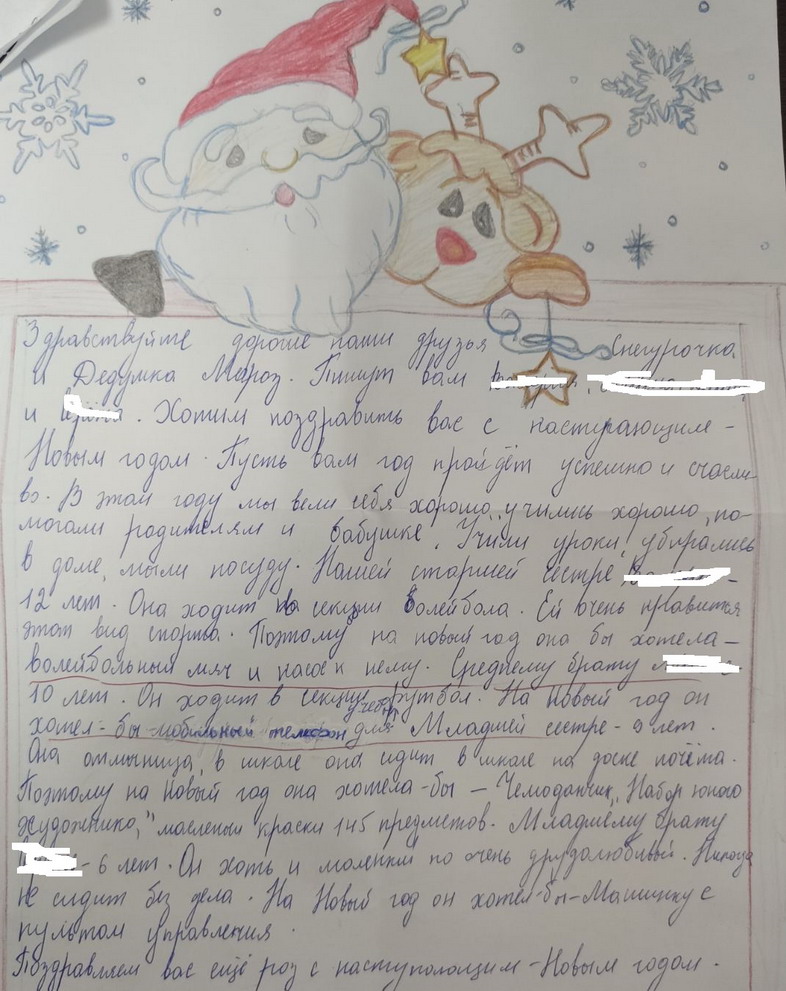 Здравствуйте дорогие наши друзья Снегурочка
и Дедушка Мороз. Пишут вам
и . Хотим поздравить вас с наступающим -
Новым годом. Пусть вам год пройдёт успешно и счасли-
во. В этом году мы вели себя хорошо, учились хорошо, по-
могали родителям и бабушке. Учили уроки, убирались
в доме, мыли посуду. Нашей старшей сестре -
12 лет. Она ходит на секции Волейбола. Ей очень нравится
этот вид спорта. Поэтому на новый год она бы хотела -
волейбольный мяч и насос к нему. Среднему брату
10 лет. Он ходит в секцию футбол. На Новый год он
хотел-бы мобильный телефон для учёбы Младшей сестре - 9 лет.
Она отличница, в школе она сидит в школе на доске почёта.
Поэтому на Новый год она хотела-бы - Чемоданчик, "Набор юного
художника," масленые краски 145 предметов. Младшему брату
- 6 лет. Он хоть и маленкй но очень друдолюбивый. Никогда
не сидит без дела. На Новый год он хотел-бы-Машинку с
пультом управления.
Поздравляем вас ещё роз с наступающим-Новым годом.